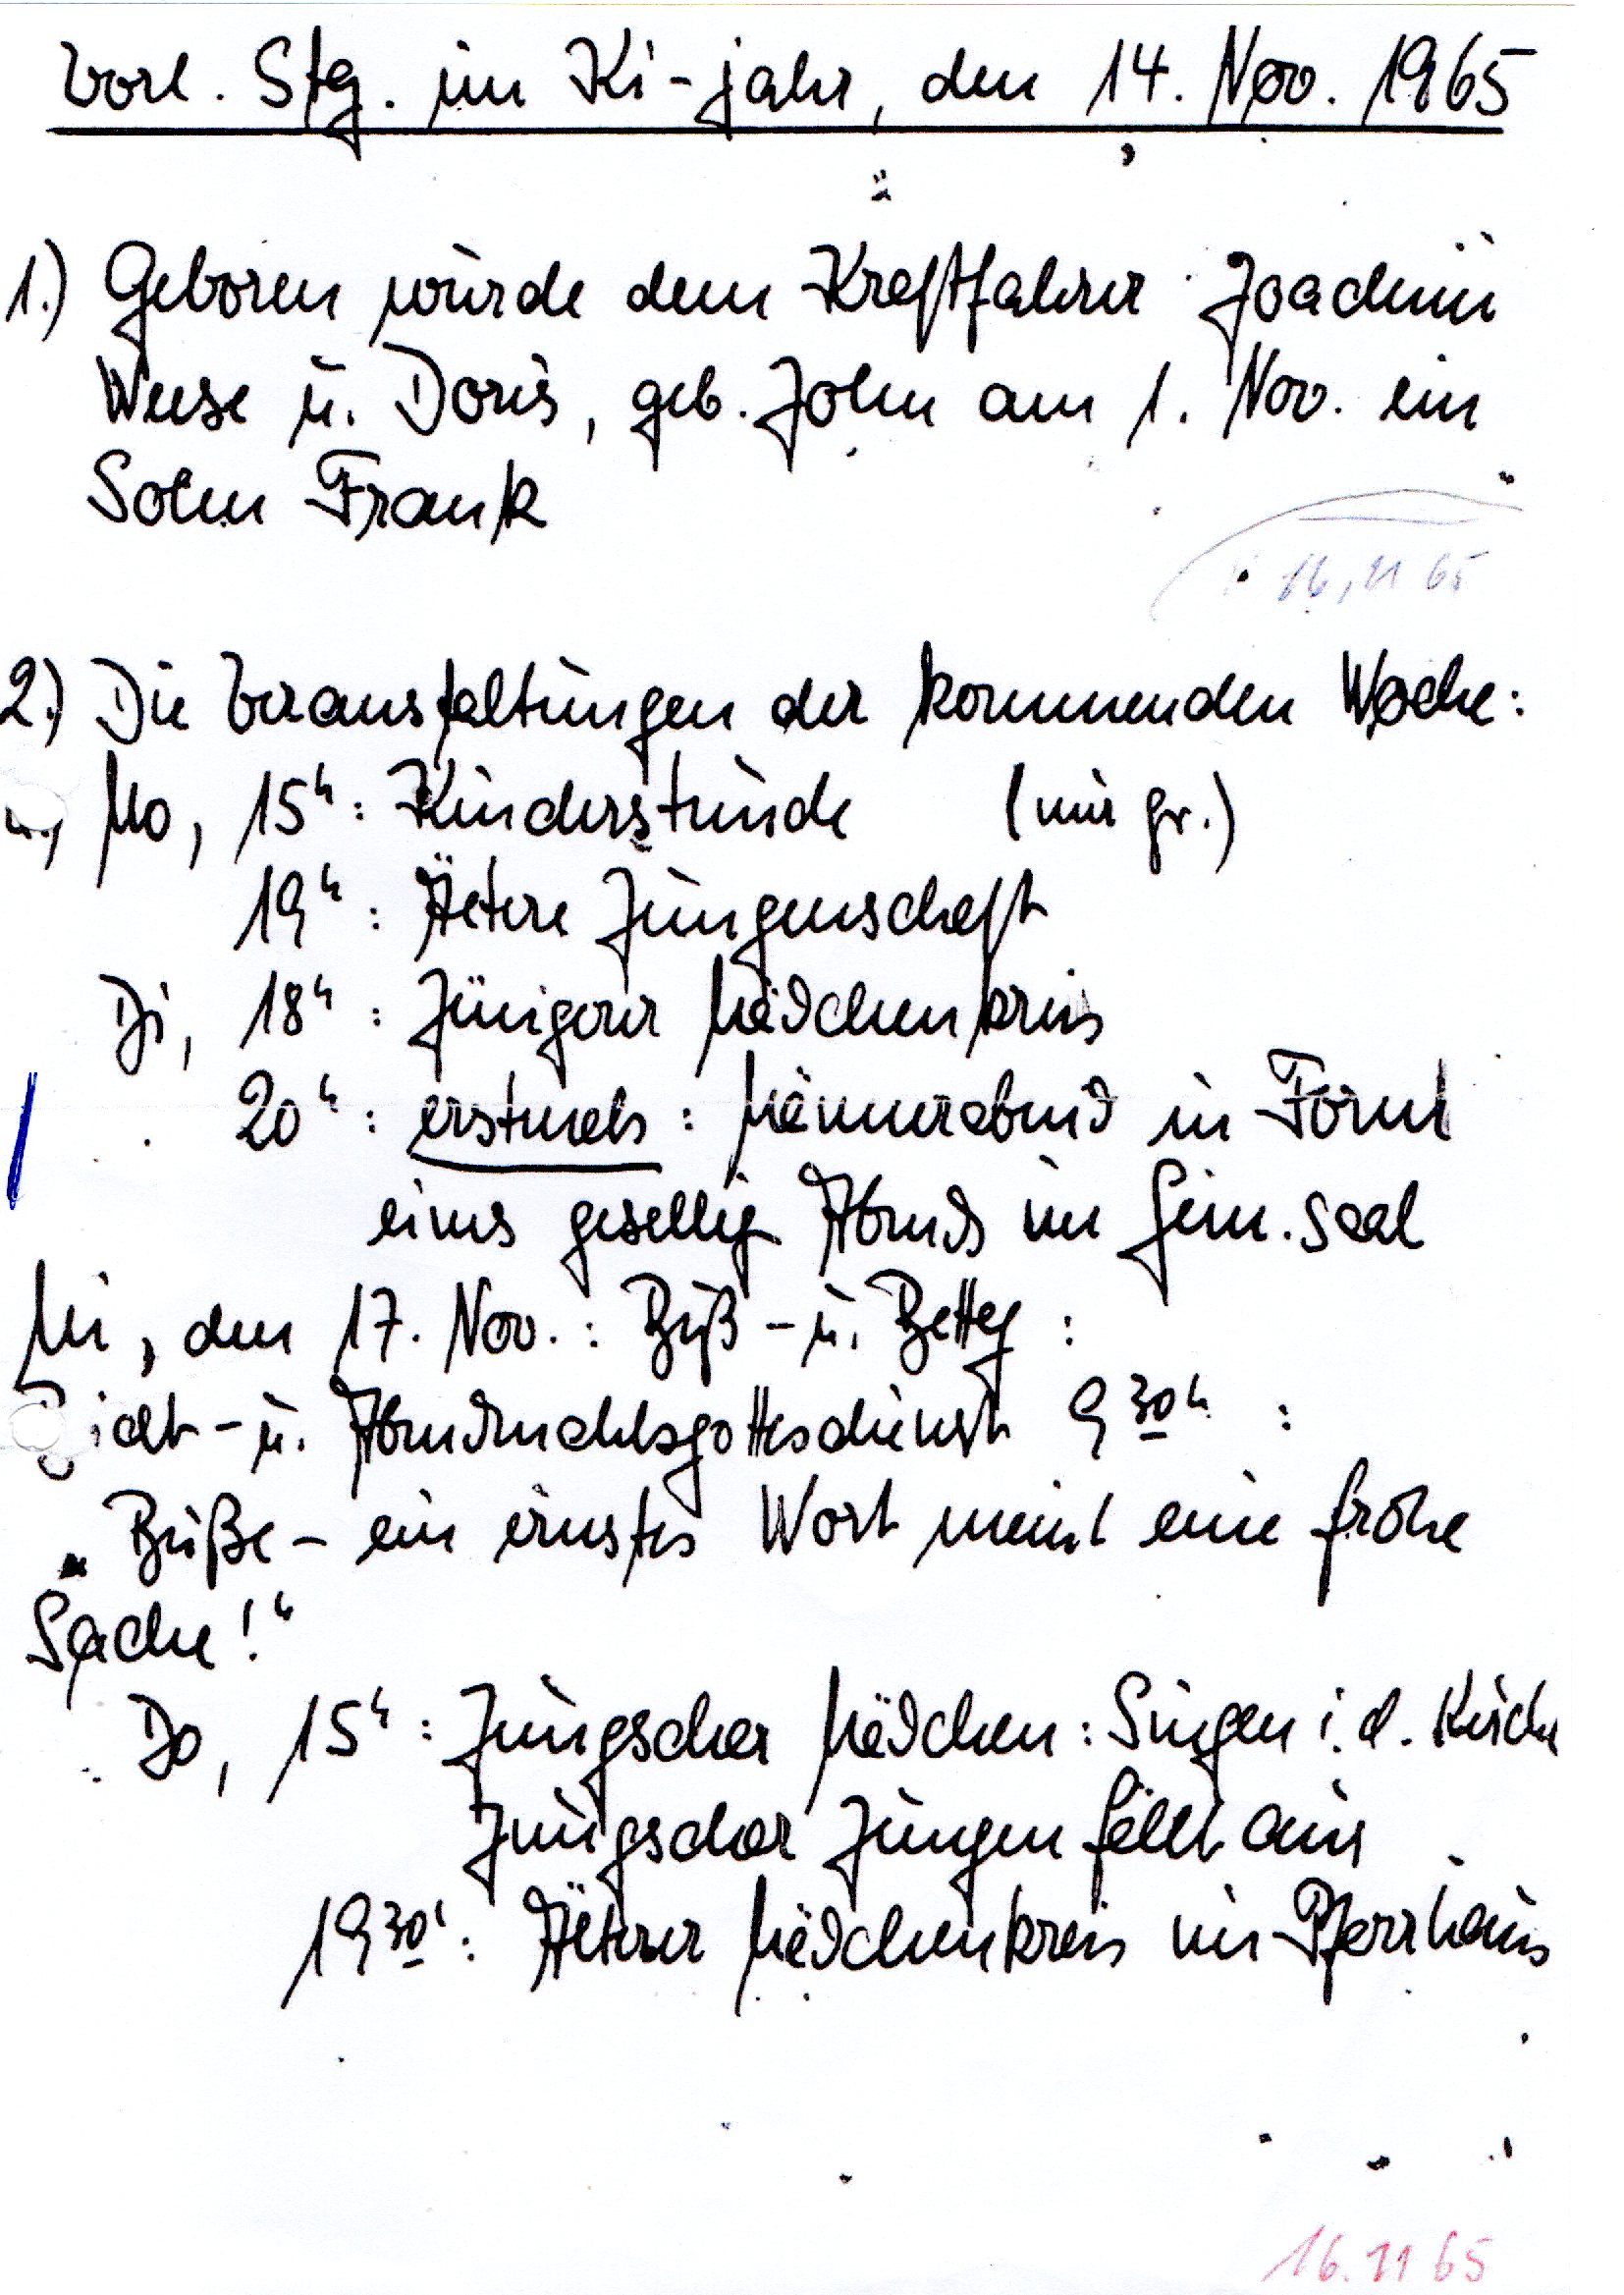 Vorl. Stg. im Ki-jahr, den 14. Nov. 1965
1.) Geboren wurde dem Kraftfahrer Joachim
Weese u. Doris, geb. John am 1. Nov. ein
Sohn Frank
16, 11 65
2.) Die Veranstaltungen der kommenden Woche:
Mo, 15h: Kinderstunde (nur gr.)
19h: Ältere Jungenschaft
Di, 18h: Jüngerer Mädchenkreis
20h: erstmals: Männerabend in Form
eines gesellig Abends im Gem.saal
Mi, den 17. Nov.: Buß- u. Bettag:
Beicht- u. Abendmahlsgottesdienst 9 30 h:
"Buße - ein ernstes Wort meint eine frohe
Sache!"
Do, 15h: Jungschar Mädchen: Singen i. d. Kirche
Jungschar Jungen fällt aus
19 30': Älterer Mädchenkreis im Pfarrhaus
16.11 65